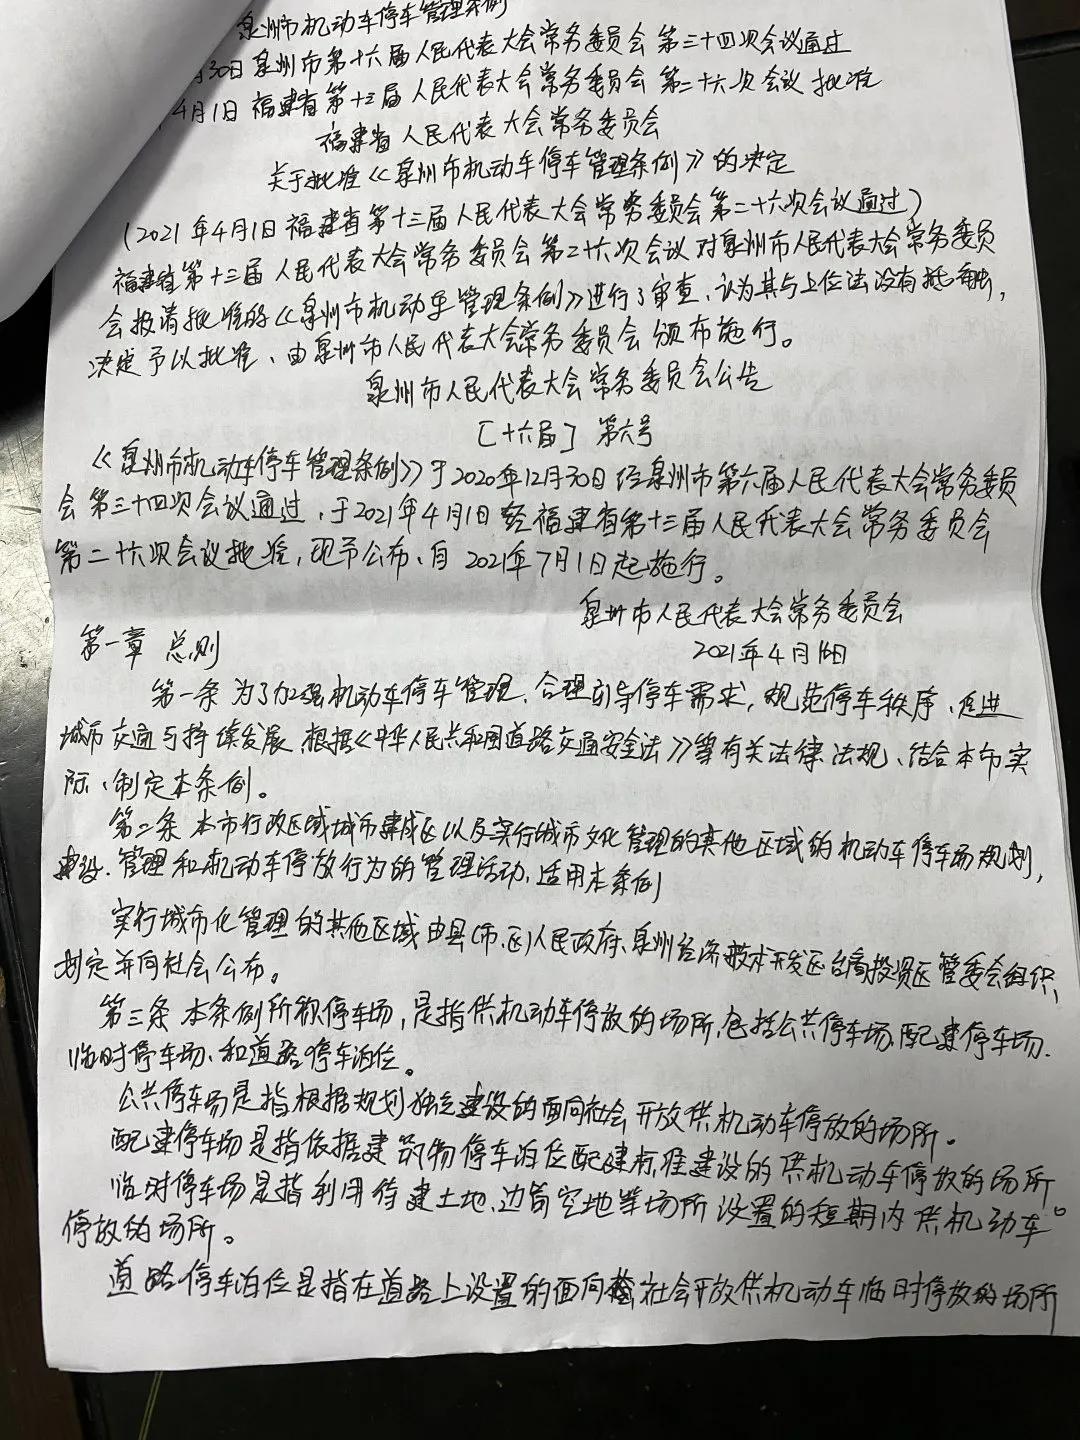 泉州市机动车停车管理条例
月30日泉州市第十六届人民代表大会常务委员会第三十四次会议通过
4月1日福建省第十三届人民代表大会常务委员会第二十六次会议批准
福建省人民代表大会常务委员会
关于批准《泉州市机动车停车管理条例》的决定
(2021年4月1日福建省第十三届人民代表大会常务委员会第二十六次会议通过)
福建省第十三届人民代表大会常务委员会第二十六次会议对泉州市人民代表大会常务委员
会报请批准的《泉州市机动车管理条例》进行了审查、认为其与上位法没有抵触,
决定予以批准、由泉州市人民代表大会常务委员会颁布施行。
泉州市人民代表大会常务委员会公告
[十六届] 第六号
《泉州市机动车停车管理条例》于2020年12月30日经泉州市第六届人民代表大会常务委员
会第三十四次会议通过,于2021年4月1日经福建省第十三届人民代表大会常务委员会
第二十六次会议批准,现予公布、自2021年7月1日起施行。
泉州市人民代表大会常务委员会
2021年4月16日
第一章 总则
第一条 为了加强机动车停车管理、合理引导停车需求,规范停车秩序、促进
城市交通可持续发展 根据《中华人民共和国道路交通安全法》等有关法律、法规、结合本市实
际、制定本条例。
第二条 本市行政区域城市建成区以及实行城市文化管理的其他区域的机动车停车场规划,
建设、管理和机动车停放行为的管理活动,适用本条例
实行城市化管理的其他区域由县(市、区)人民政府、泉州经济技术开发区台商投资区管委会组织,
划定并向社会公布。
第三条 本条例所称停车场,是指供机动车停放的场所,包括公共停车场、配建停车场、
临时停车场、和道路停车泊位。
公共停车场是指根据规划独立建设的面向社会开放供机动车停放的场所。
配建停车场是指依据建筑物停车泊位配建标准建设的供机动车停放的场所
临时停车场是指利用待建土地、边角空地等场所设置的短期内供机动车。
停放的场所。
道路停车泊位是指在道路上设置的面向社会开放供机动车临时停放的场所